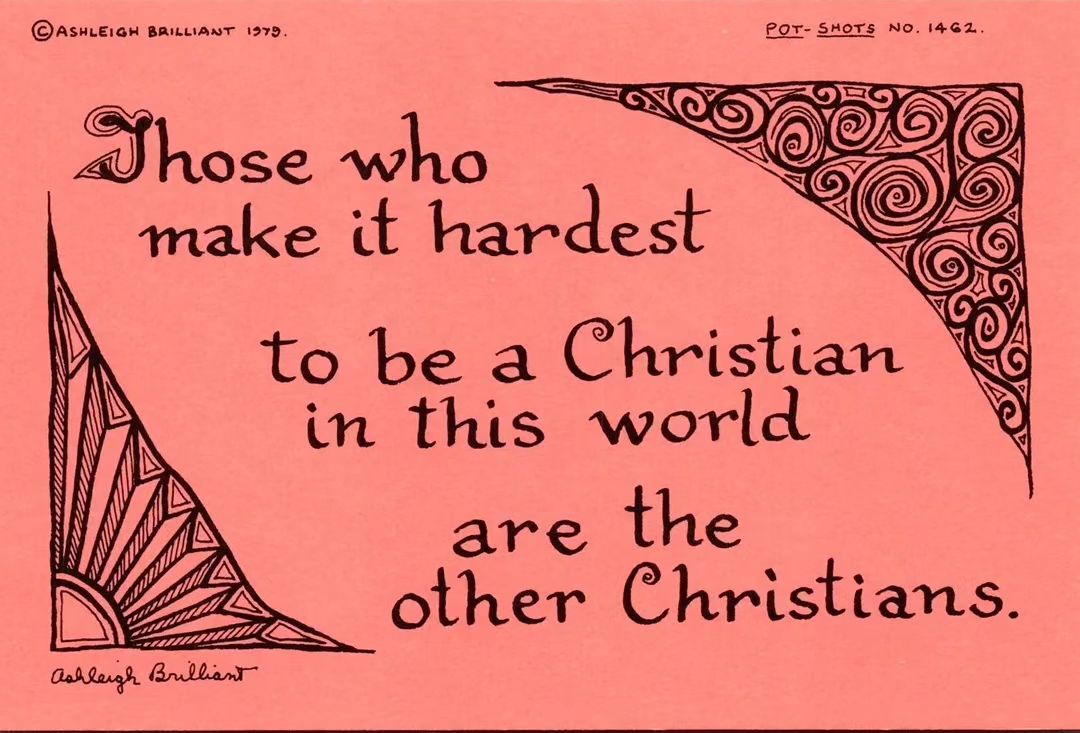 © ASHLEIGH BRILLIANT 1979.
POT-SHOTS NO. 1462.
Those who
make it hardest
to be a Christian
in this world
are the
other Christians.
Ashleigh Brilliant